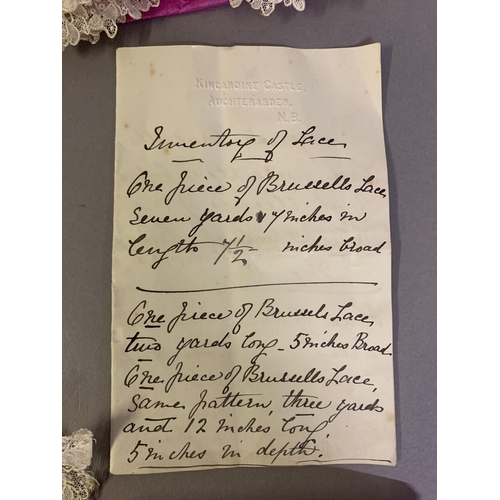 KINCARDINE CASTLE,
AUCHTERARDER,
N.B.
Inventory of Lace
One piece of Brussells Lace
Seven yards 17 inches in
length 7½ inches broad
One piece of Brussels Lace,
two yards long - 5 inches Broad
One piece of Brussells Lace,
same pattern, three yards
and 12 inches long,
5 inches in depth.